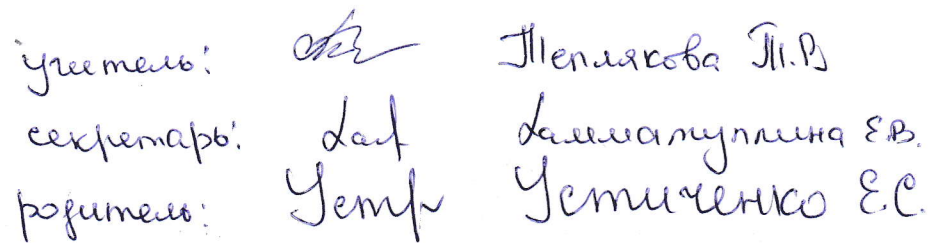 учитель: Теплякова Т.В
секретарь: Е.В.
родитель: Устиченко Е.С.